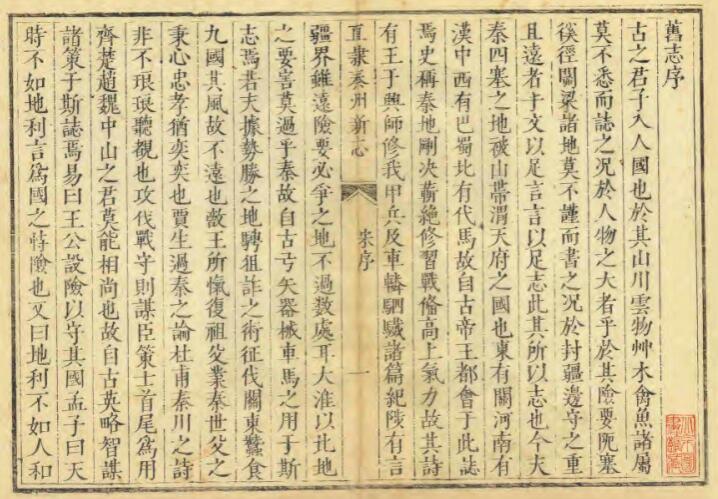 舊志序
古之君子入人國也於其山川雲物艸木禽魚諸屬
莫不悉而誌之况於人物之大者乎於其險要阨塞
徯徑關梁諸地莫不謹而書之况於封疆邊守之重
且遠者乎文以足言言以足志此其所以志也今夫
秦四塞之地被山帶渭天府之國也東有關河南有
漢中西有巴蜀北有代馬故自古帝王都會于此誌
焉史稱秦地剛决蘄絶修習戰備高上氣力故其詩
有王于興師修我甲兵及車轔駟驖諸篇紀陵有言
直隸秦州新志
朱序
一
疆界雖遠險要必爭之地不過數處耳大淮以北地
之要害莫過乎秦故自古弓矢器械車馬之用于斯
志焉若夫據勢勝之地騁狙詐之術征伐關東蠶食
九國其風故不遠也敵王所愾復祖父業秦世父之
秉心忠孝猶奕奕也賈生過秦之論杜甫秦川之詩
非不琅琅聽覩也攻伐戰守則謀臣策士首尾爲用
齊楚趙魏中山之君莫能相尚也故自古英略智謀
諸策于斯誌焉易曰王公設險以守其國孟子曰天
時不如地利言爲國之恃險也又曰地利不如人和